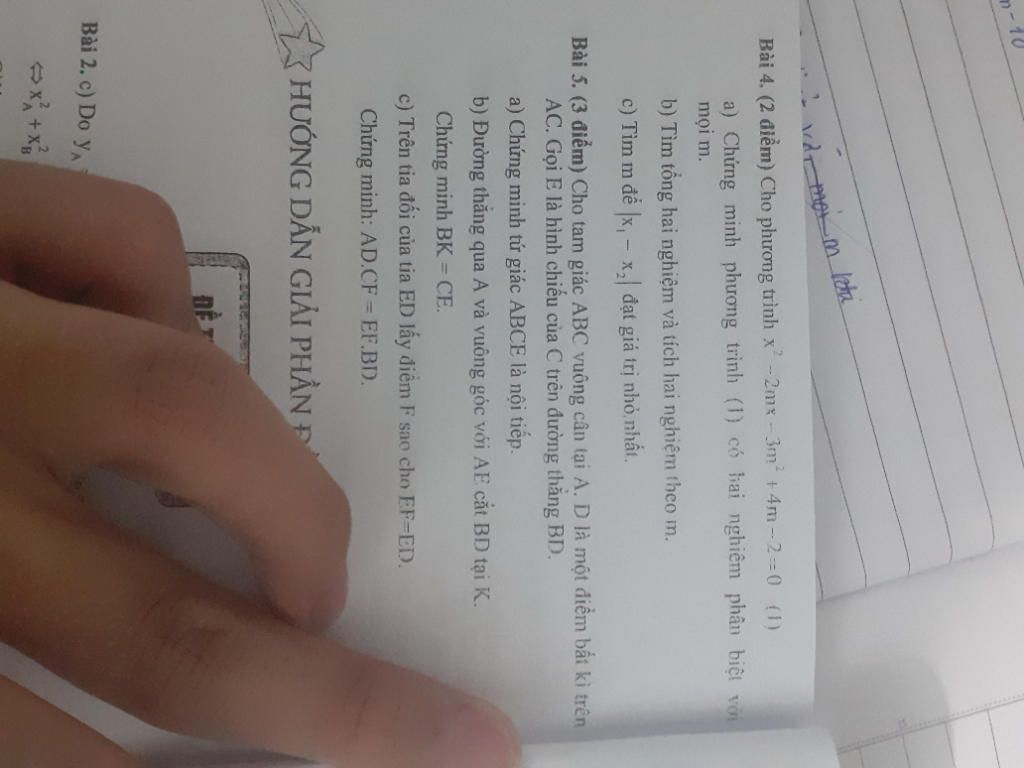 n - 10
mọi m
Bài 4. (2 điểm) Cho phương trình x² – 2mx – 3m² + 4m – 2 = 0 (1)
a) Chứng minh phương trình (1) có hai nghiệm phân biệt với
mọi m.
b) Tìm tổng hai nghiệm và tích hai nghiệm theo m.
c) Tìm m để |x₁ – x₂| đạt giá trị nhỏ nhất.
Bài 5. (3 điểm) Cho tam giác ABC vuông cân tại A. D là một điểm bất kì trên
AC. Gọi E là hình chiếu của C trên đường thẳng BD.
a) Chứng minh tứ giác ABCE là nội tiếp.
b) Đường thẳng qua A và vuông góc với AE cắt BD tại K.
Chứng minh BK = CE.
c) Trên tia đối của tia ED lấy điểm F sao cho EF=ED.
Chứng minh: AD.CF = EF.BD.
HƯỚNG DẪN GIẢI PHẦN
ĐỀ
Bài 2. c) Do y_A
⇔ x²_A + x²_B